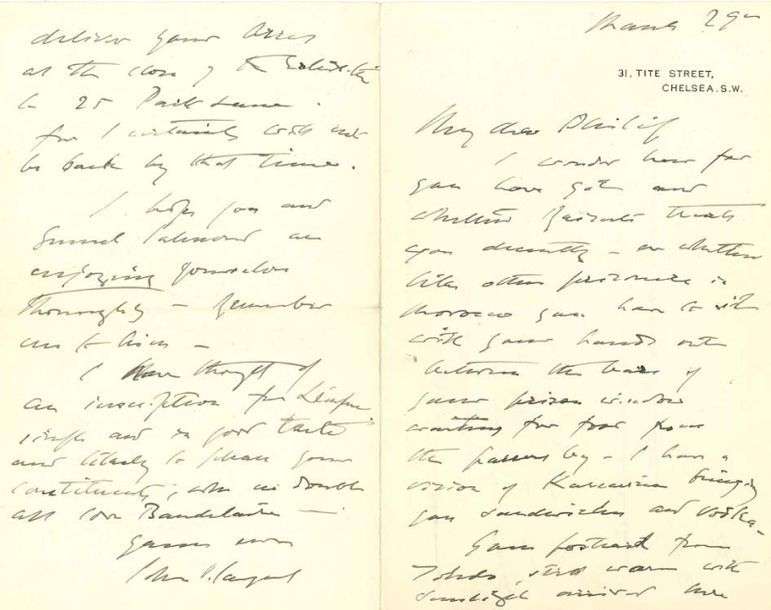 March 29th
31, TITE STREET,
CHELSEA. S.W.
My dear Philip
I wonder how far
you have got and
whether Raisuli treats
you decently – or whether
like other prisoners in
Morocco you have to sit
with your hands out
between the bars of
your prison window
waiting for food from
the passers by – I have a
vision of Karsavina bringing
you sandwiches and vodka –
Your postcard from
Toledo, still warm with
sunlight arrived here
deliver your
at the close of the Exhibition
to 25 Park Lane.
for I certainly will not
be back by that time.
I hope you and
are
enjoying yourselves
thoroughly – Remember
me to him –
I have thought of
an inscription for
simple and in good taste
and likely to please your
constituents, who no doubt
all love Baudelaire —
Yours ever
John S. Sargent